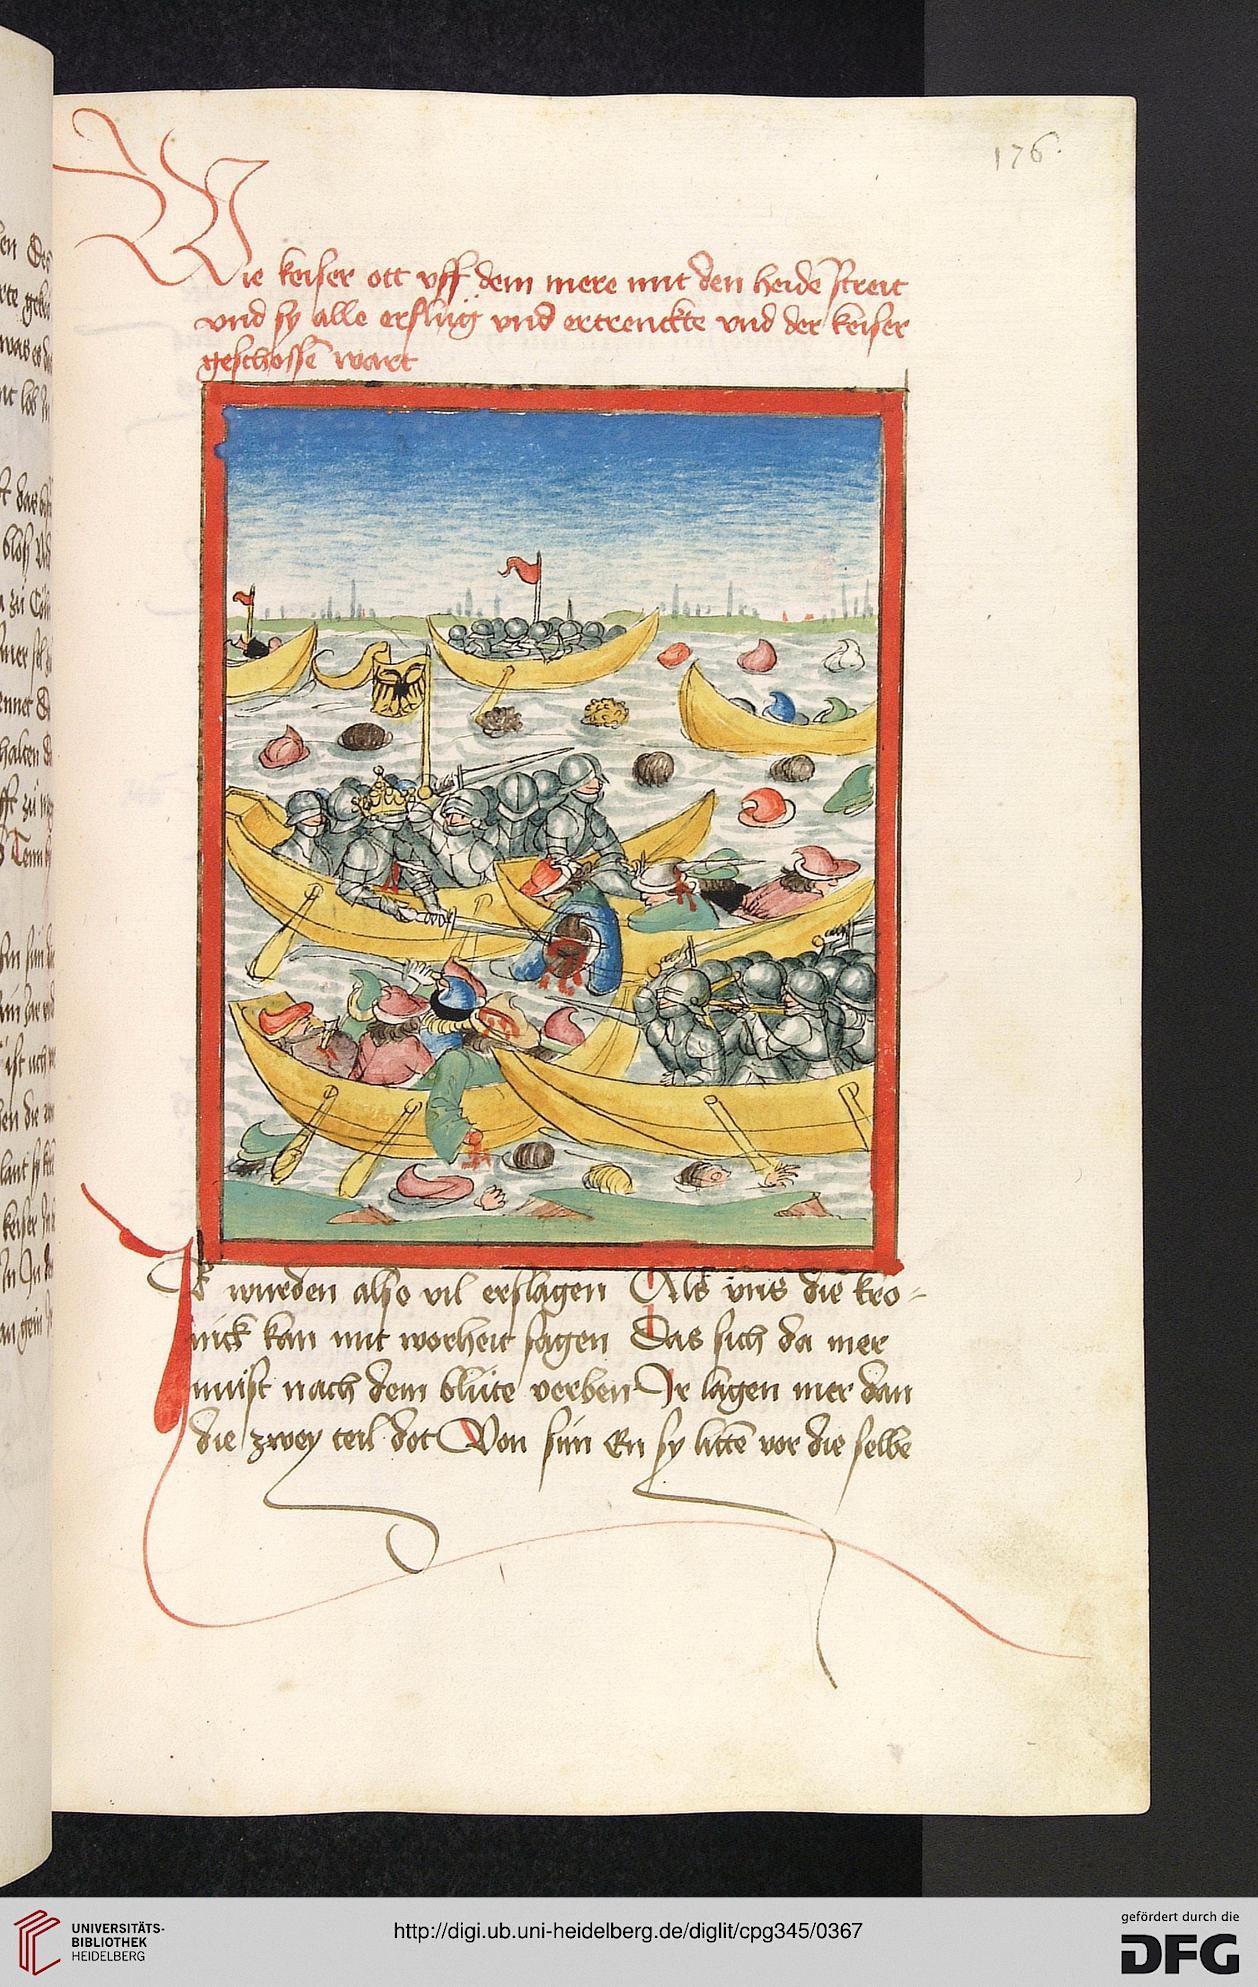 176.
Wie keiser ott vff dem mere mit den heidē streit
vnd sy alle erslüg vnd ertrenckte vnd der keiser
geschossē wart
wurden also vil erslagen Als vns die kro-
nick kan mit worheit sagen Das sich da mer
müst nach dem blüte verben Ir lagen mer dan
die zwey teil dot Von sün En sy litte vor die selbe
UNIVERSITÄTS-
BIBLIOTHEK
HEIDELBERG
http://digi.ub.uni-heidelberg.de/diglit/cpg345/0367
gefördert durch die
DFG